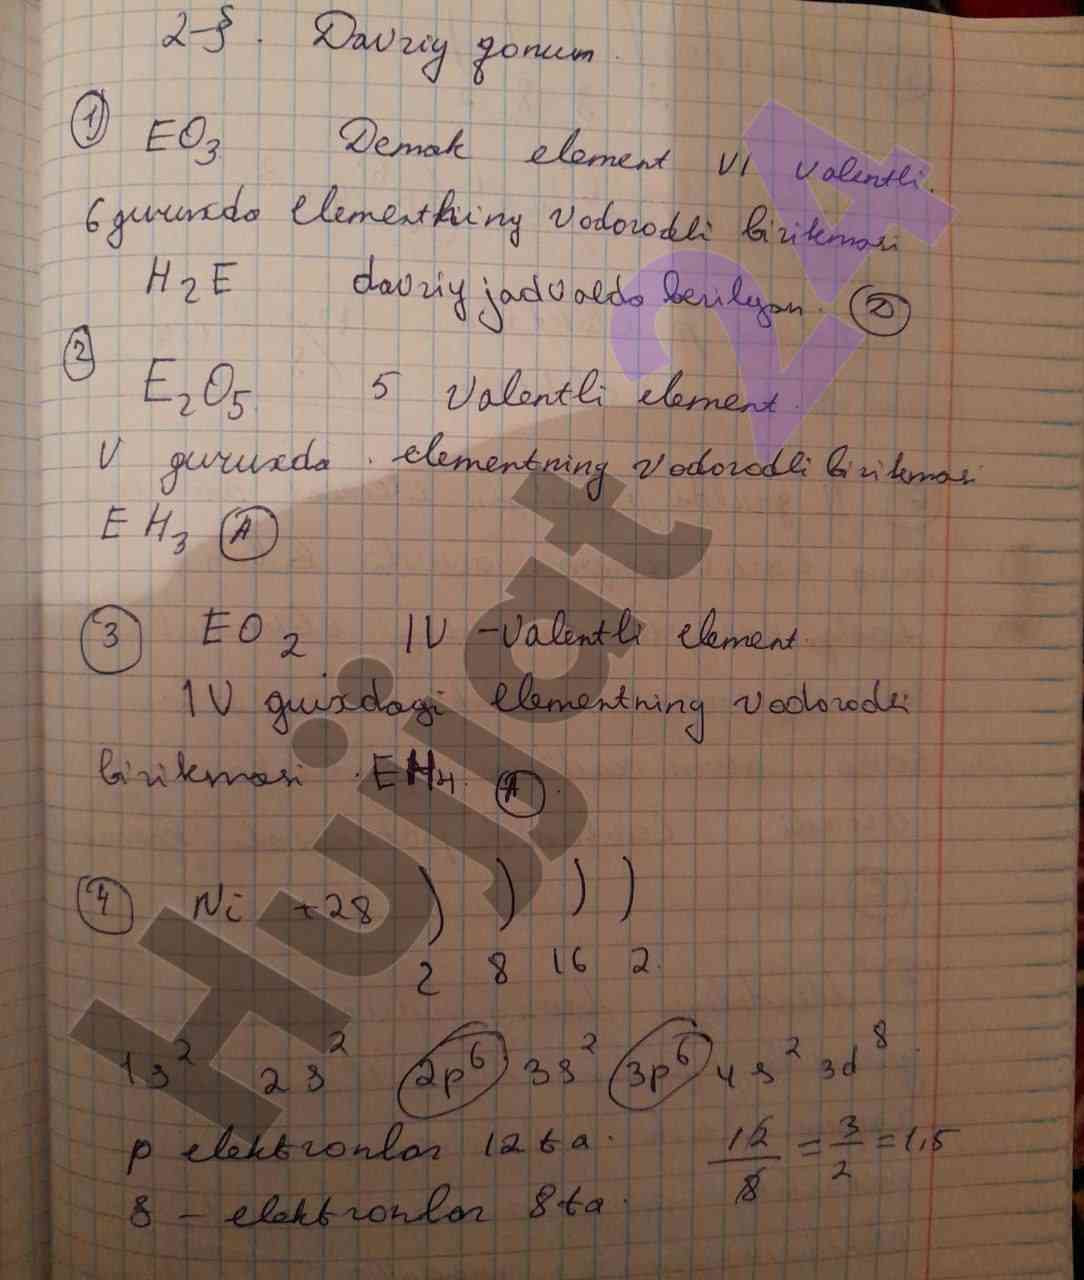 2-§. Davriy qonun.
① EO₃ Demak element VI valentli.
6 guruxda elementning vodorodli birikmasi
H₂E davriy jadvalda berilgan. Ⓓ
② E₂O₅ 5 valentli element.
V guruxda. elementning vodorodli birikmasi
EH₃ Ⓐ
③ EO₂ IV -valentli element.
IV guixdagi elementning vodorodli
birikmasi. EH₄. Ⓐ.
④ Ni +28 ) ) ) )
2 8 16 2.
1s² 2s² 2p⁶ 3s² 3p⁶ 4s² 3d⁸.
p elektronlar 12 ta. 12/8 = 3/2 = 1,5
s - elektronlar 8 ta.
Hujjat 24